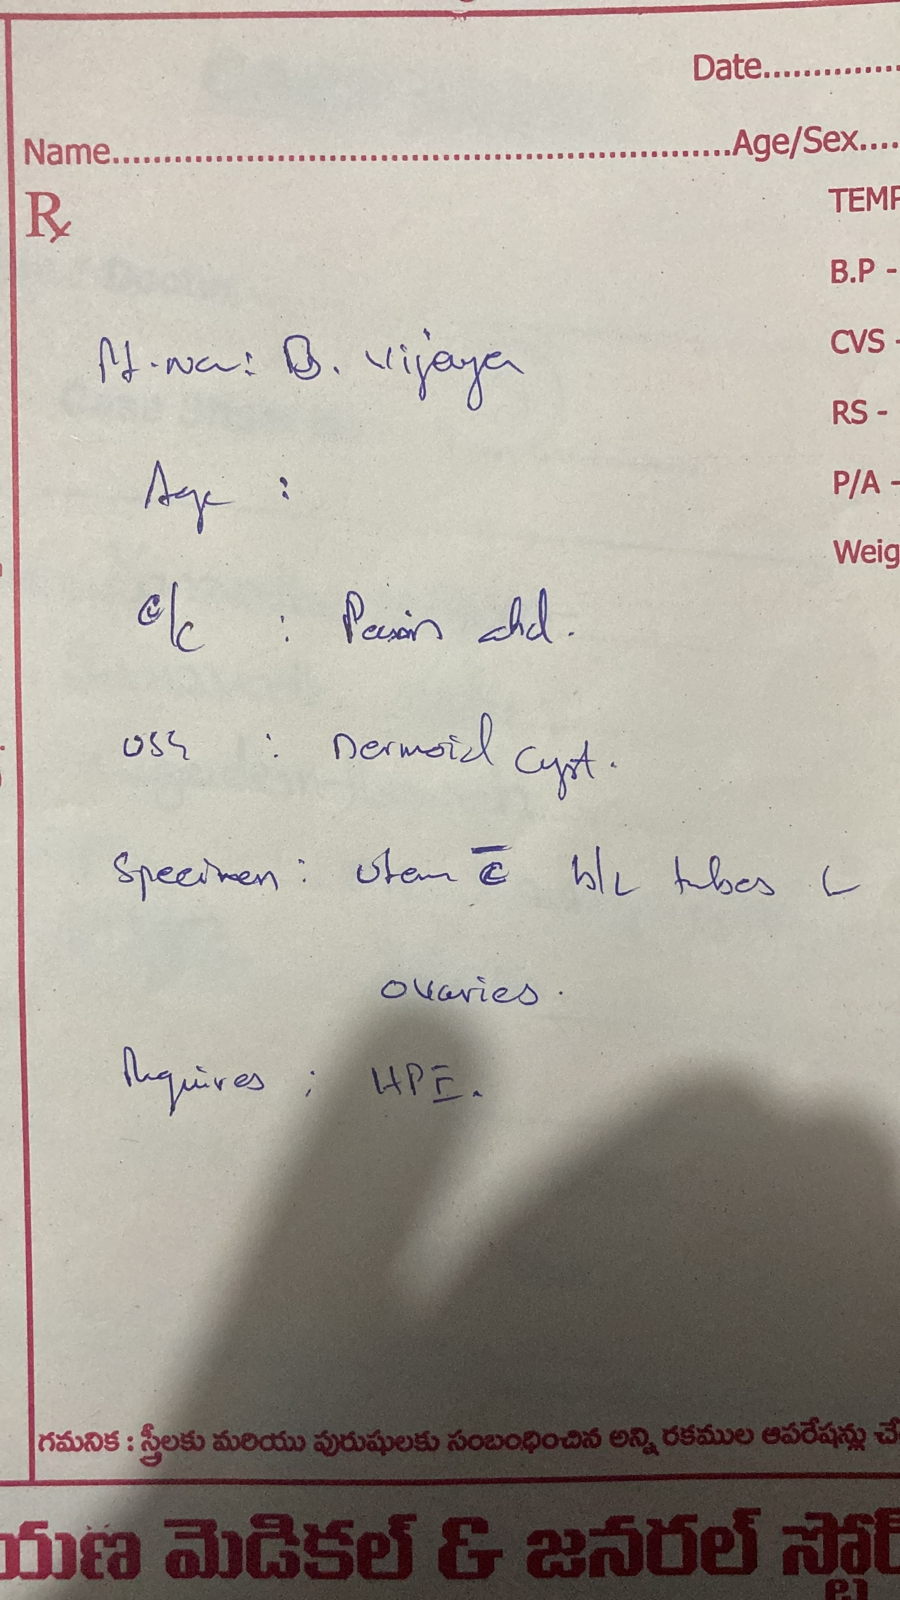 Date..............
Name..........................................................................Age/Sex....
Rx
TEMP
B.P -
CVS -
RS -
P/A -
Weig
Pt. Na: B. Vijaya
Age :
C/C : Pain abd.
USG : Dermoid Cyst.
Specimen : Uterus c̅ b/L tubes &
ovaries.
Requires : HPE.
గమనిక : స్త్రీలకు మరియు పురుషులకు సంబంధించిన అన్ని రకముల ఆపరేషన్లు చే
యణ మెడికల్ & జనరల్ స్టోర్